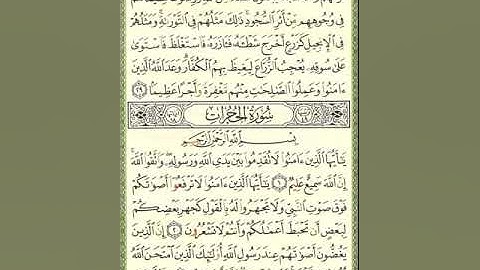 فِى وُجُوهِهِم مِّنْ أَثَرِ ٱلسُّجُودِ ذَٰلِكَ مَثَلُهُمْ فِى ٱلتَّوْرَىٰةِ وَمَثَلُهُمْ
فِى ٱلْإِنجِيلِ كَزَرْعٍ أَخْرَجَ شَطْـَٔهُۥ فَـَٔازَرَهُۥ فَٱسْتَغْلَظَ فَٱسْتَوَىٰ
عَلَىٰ سُوقِهِۦ يُعْجِبُ ٱلزُّرَّاعَ لِيَغِيظَ بِهِمُ ٱلْكُفَّارَ وَعَدَ ٱللَّهُ ٱلَّذِينَ
ءَامَنُوا۟ وَعَمِلُوا۟ ٱلصَّـٰلِحَـٰتِ مِنْهُم مَّغْفِرَةً وَأَجْرًا عَظِيمًۢا ٢٩
سُورَةُ الْحُجُرَاتِ
بِسْمِ ٱللَّهِ ٱلرَّحْمَـٰنِ ٱلرَّحِيمِ
يَـٰٓأَيُّهَا ٱلَّذِينَ ءَامَنُوا۟ لَا تُقَدِّمُوا۟ بَيْنَ يَدَىِ ٱللَّهِ وَرَسُولِهِۦ وَٱتَّقُوا۟ ٱللَّهَ
إِنَّ ٱللَّهَ سَمِيعٌ عَلِيمٌ ١ يَـٰٓأَيُّهَا ٱلَّذِينَ ءَامَنُوا۟ لَا تَرْفَعُوٓا۟ أَصْوَٰتَكُمْ
فَوْقَ صَوْتِ ٱلنَّبِىِّ وَلَا تَجْهَرُوا۟ لَهُۥ بِٱلْقَوْلِ كَجَهْرِ بَعْضِكُمْ
لِبَعْضٍ أَن تَحْبَطَ أَعْمَـٰلُكُمْ وَأَنتُمْ لَا تَشْعُرُونَ ٢ إِنَّ ٱلَّذِينَ
يَغُضُّونَ أَصْوَٰتَهُمْ عِندَ رَسُولِ ٱللَّهِ أُو۟لَـٰٓئِكَ ٱلَّذِينَ ٱمْتَحَنَ ٱللَّهُ